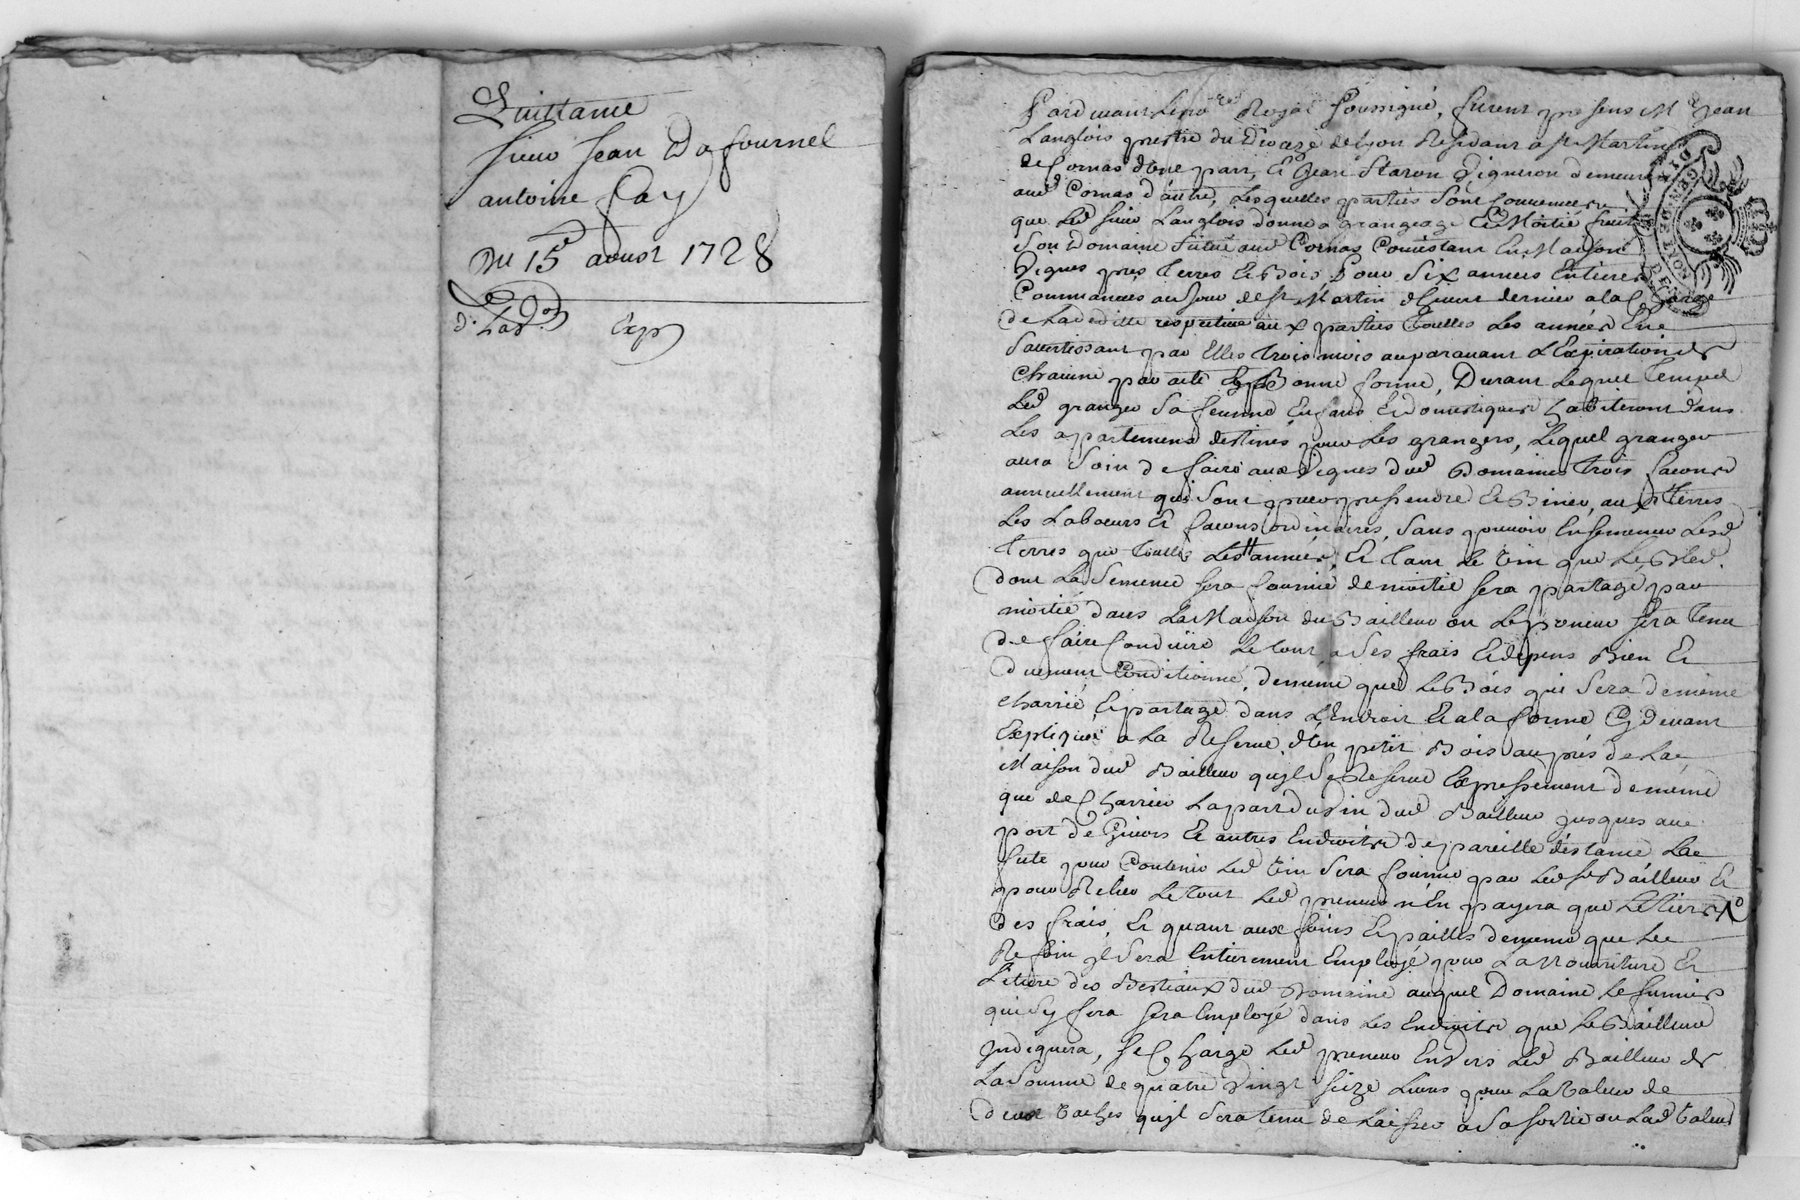 Quittance
sieur Jean Dafournel
antoine Fay
Du 15e aoust 1728
Exp
Pardevant Le no.re Royal soussigné, furent presens Mre Jean
Langlois prestre du Dioceze de lyon Residant a St Martin
de Cornas d'une part, et Jean Staron Vigneron demeurant
aud Cornas d'autre, Lesquelles parties sont convenues
que Led sieur Langlois donne a grangeage et Moitié fruit
son Domaine situé aud Cornas Consistant En Maison
Vignes prés Terres et Bois pour six années Entieres
Commancées au Jour de st Martin d'hiver dernier a la Charge
de La deditte respective aux parties Toutes Les années En
s'avertissant par Elles trois mois auparavant L'Expiration de
chacune par acte En Bonne forme, Durant Lequel Temps
Led granger sa femme Enfans et domestiques habiteront dans
Les apartemens destinés pour Les grangers, Lequel granger
aura soin de faire aux Vignes dud Domaine trois façons
annuellement qui sont et Biner, aux Terres
Les Labeurs et façons ordinaires, sans pouvoir Ensemencer Lesd
Terres que Toutes Les années, et Tant Le Vin que Le Bled
dont La semence sera fournie de moitié sera partagé par
moitié dans La Maison du Bailleur ou Le preneur sera tenu
de faire Conduire Le tout a ses frais et depens Bien et
duement Conditionné, de meme que Le Bois qui sera de meme
charrié et partagé dans L'Endroit et a la forme Cy devant
Expliquée a La Reserve d'un petit Bois auprés de La
Maison dud Bailleur qu'jl se Reserve Expressement de meme
que de Charrier La part du Vin dud Bailleur jusques au
port de Givors et autres Endroits de pareille distance La
futé pour Contenir Led Vin sera fournie par Led sr Bailleur et
pour Relier Le tout Led preneur n'En payera que Le tiers
des frais, et quant aux foins et pailles de meme que Le
Refoin jl sera Entierement Employé pour La Nourriture et
Litiere des Bestiaux dud Domaine auquel Domaine Le fumier
qui s'y fera sera Employé dans Les Endroits que Le Bailleur
Indiquera, se Charge Led preneur Envers Led Bailleur de
La somme de quatre Vingt seize Livres pour La Valeur de
deux Vaches qu'jl sera tenu de Laisser a sa sortie ou Lad Valeur